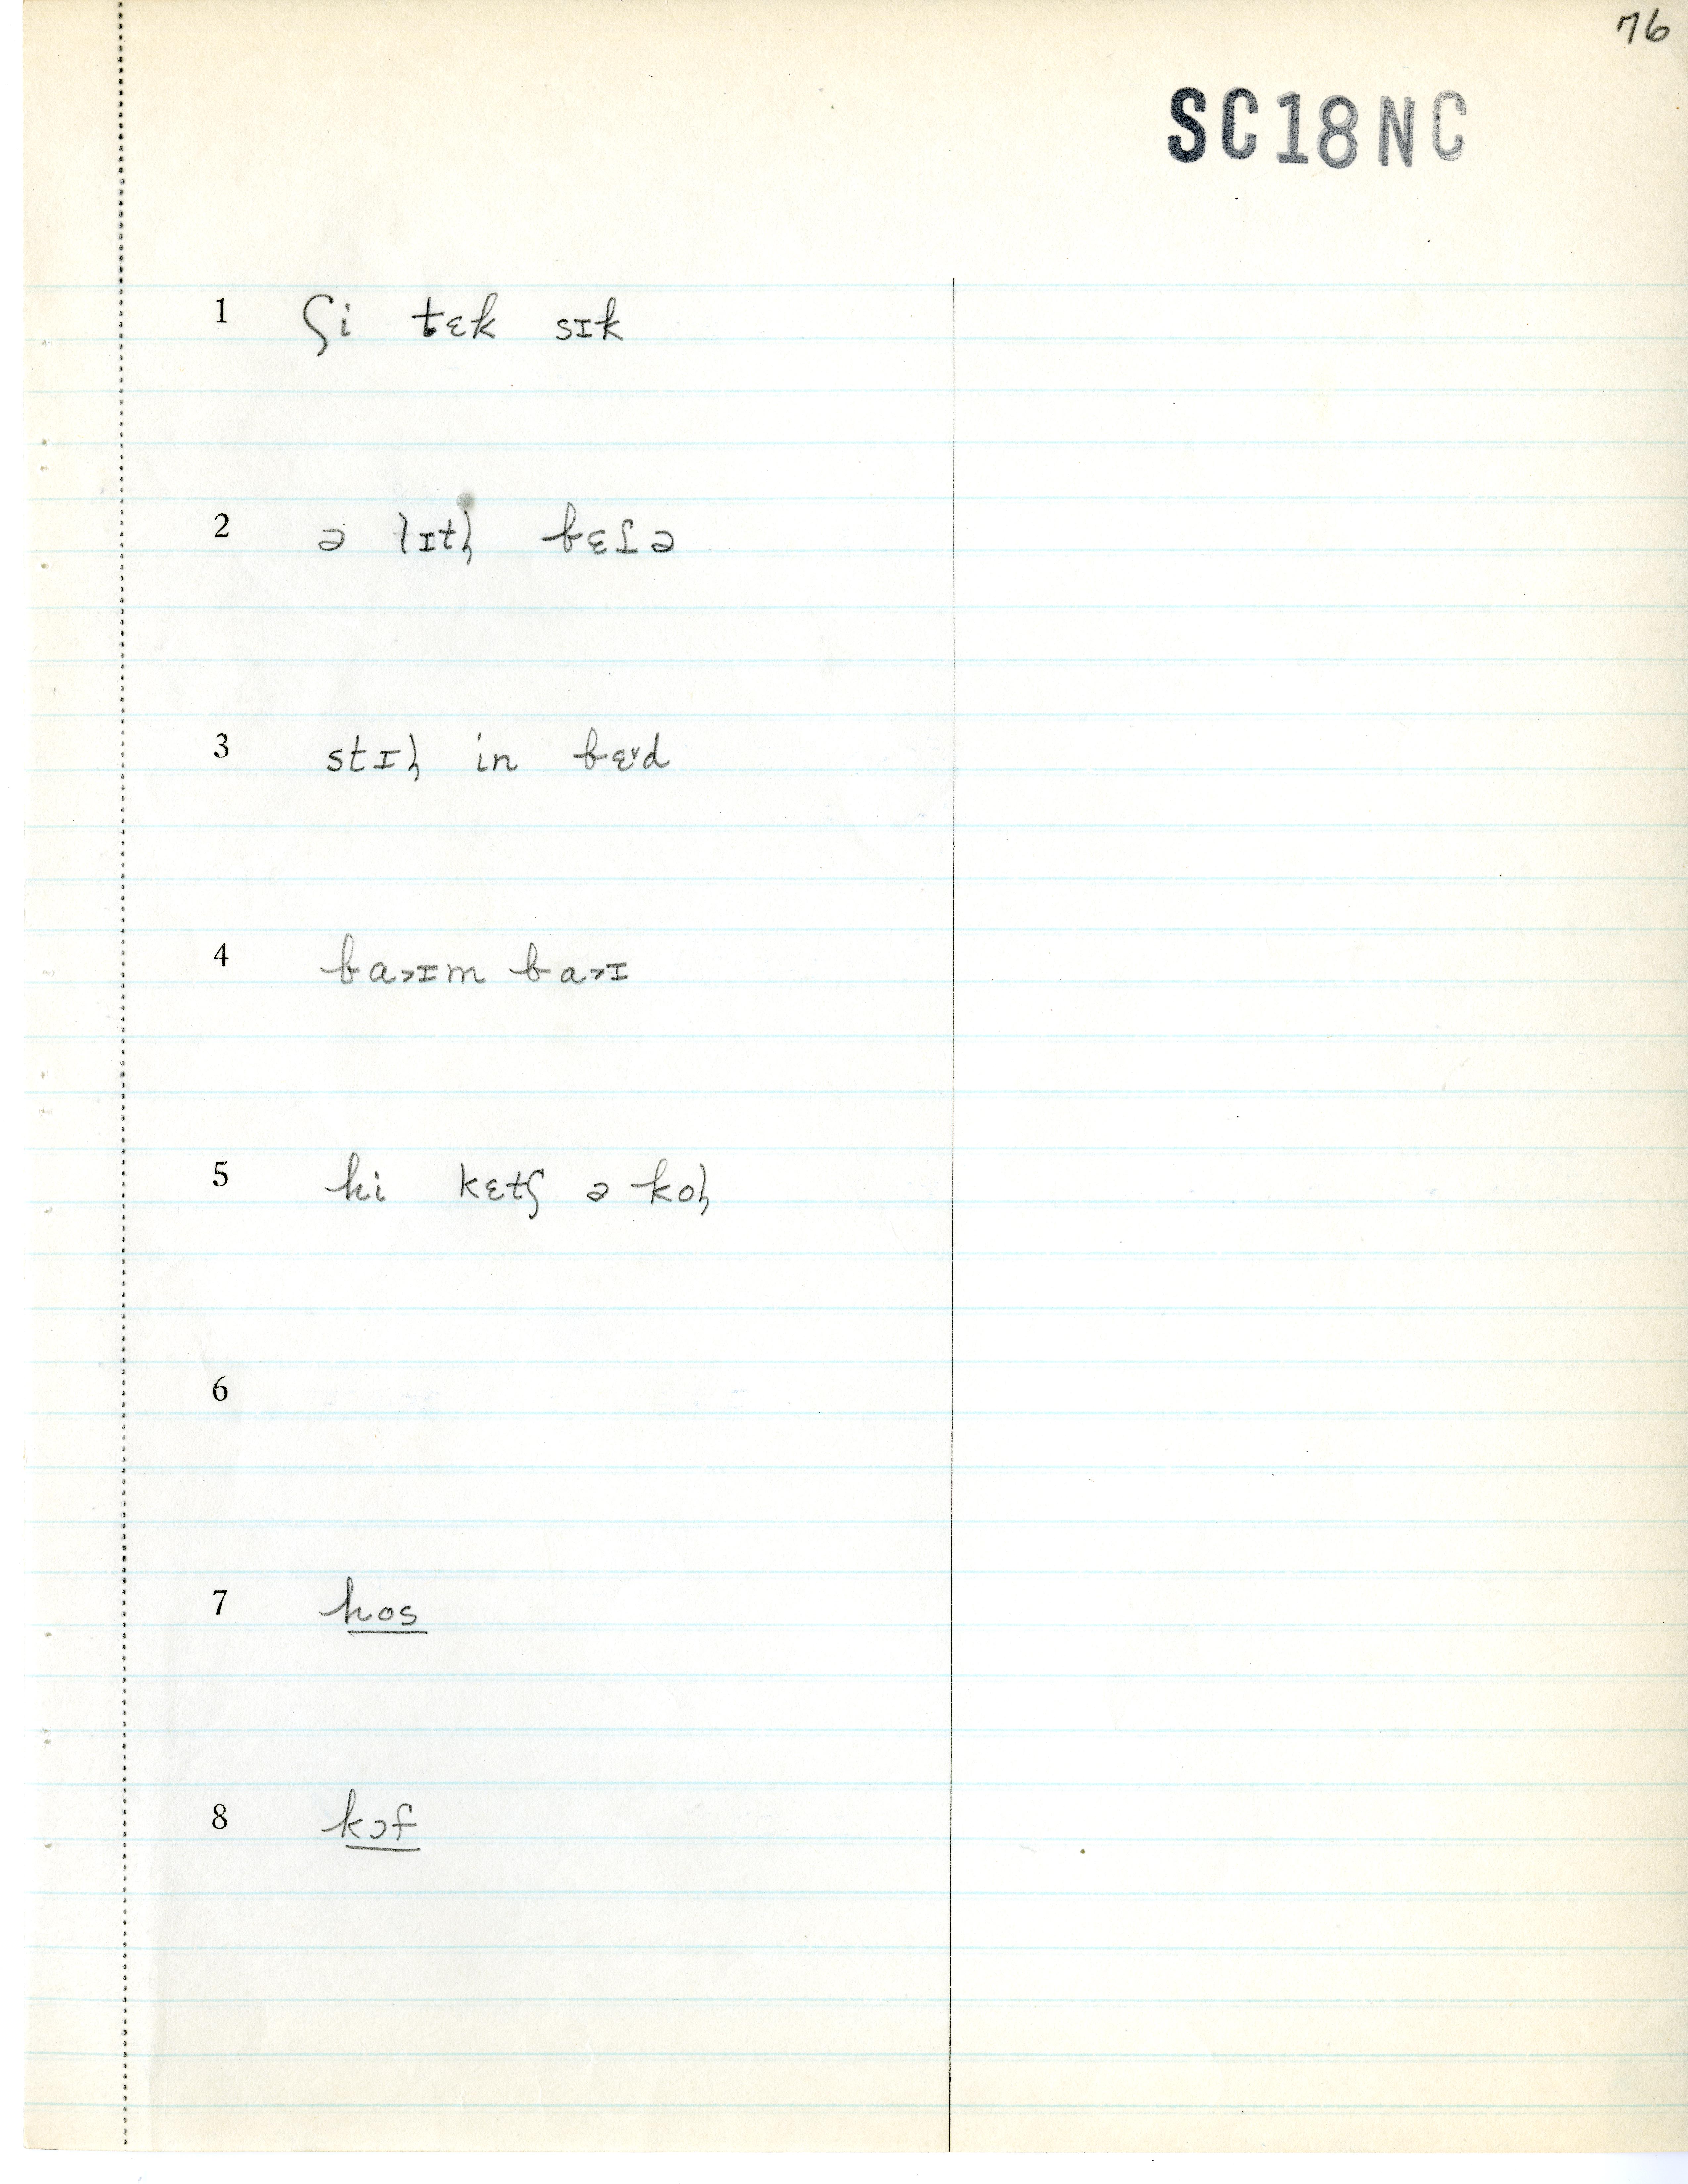 76
SC18NC
1 ʃi tɛk sɪk
2 ə lɪtl̩ bɛʃə
3 stɪl̩ in bɛᵛd
4 ba˃ɪm ba˃ɪ
5 hi kɛtʃ ə kol̩
6
7 hos
8 kɔf